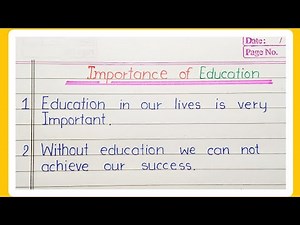 Date: /
Page No.
Importance of Education
1 Education in our lives is very
Important.
2 Without education we can not
achieve our success.